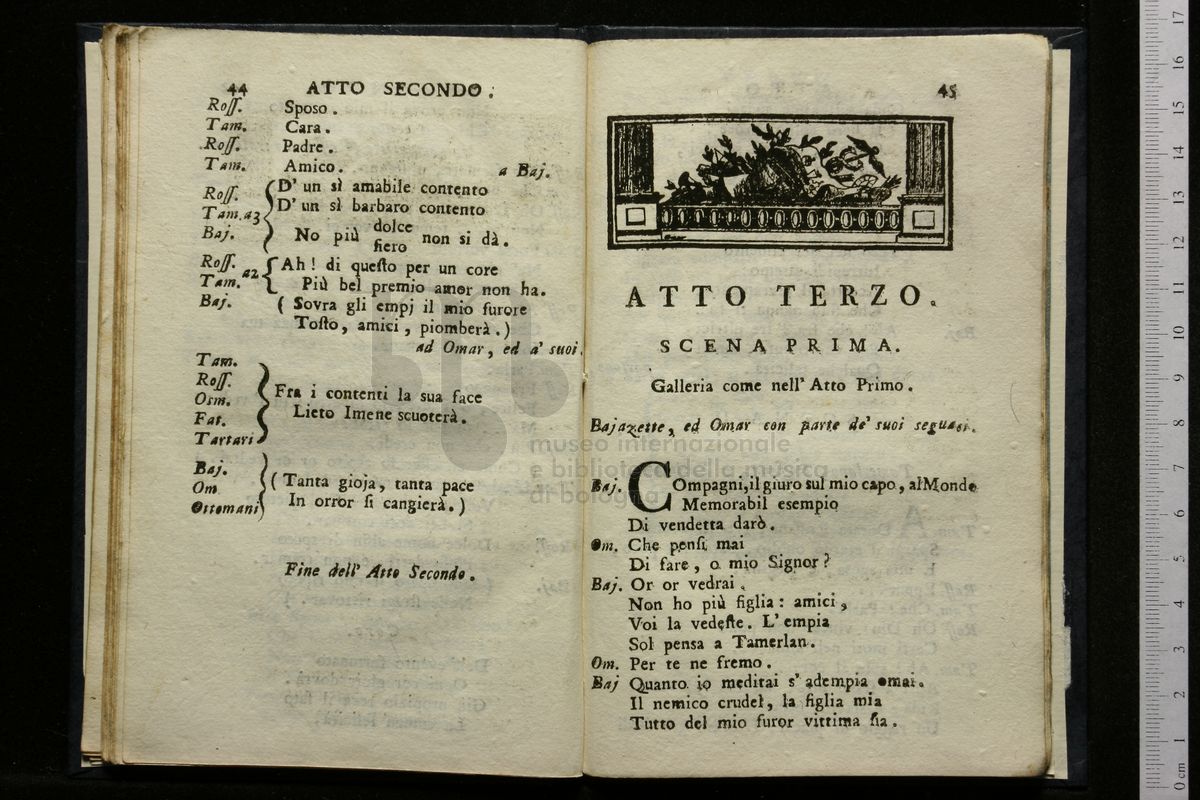 44 ATTO SECONDO.
Roſſ. Sposo.
Tam. Cara.
Roſſ. Padre.
Tam. Amico. a Baj.
Roſſ. D' un sì amabile contento
Tam. a3 D' un sì barbaro contento
Baj. No più dolce fiero non si dà.
Roſſ. Ah! di queſto per un core
Tam. a2 Più bel premio amor non ha.
Baj. ( Sovra gli empj il mio furore
Toſto, amici, piomberà.)
ad Omar, ed a' suoi.
Tam.
Roſſ.
Osm. Fra i contenti la sua face
Fat. Lieto Imene scuoterà.
Tartari
Baj.
Om. ( Tanta gioja, tanta pace
Ottomani In orror ſi cangierà.)
Fine dell' Atto Secondo.
45
ATTO TERZO.
SCENA PRIMA.
Galleria come nell' Atto Primo.
Bajazette, ed Omar con parte de' suoi seguaci.
Baj. COmpagni, il giuro sul mio capo, al Mondo
Memorabil esempio
Di vendetta darò.
Om. Che penſi mai
Di fare, o mio Signor?
Baj. Or or vedrai.
Non ho più figlia: amici,
Voi la vedeſte. L' empia
Sol pensa a Tamerlan.
Om. Per te ne fremo.
Baj Quanto io meditai s' adempia omai.
Il nemico crudel, la figlia mia
Tutto del mio furor vittima ſia.
museo internazionale
e biblioteca della musica
di bologna
0 cm 1 2 3 4 5 6 7 8 9 10 11 12 13 14 15 16 17